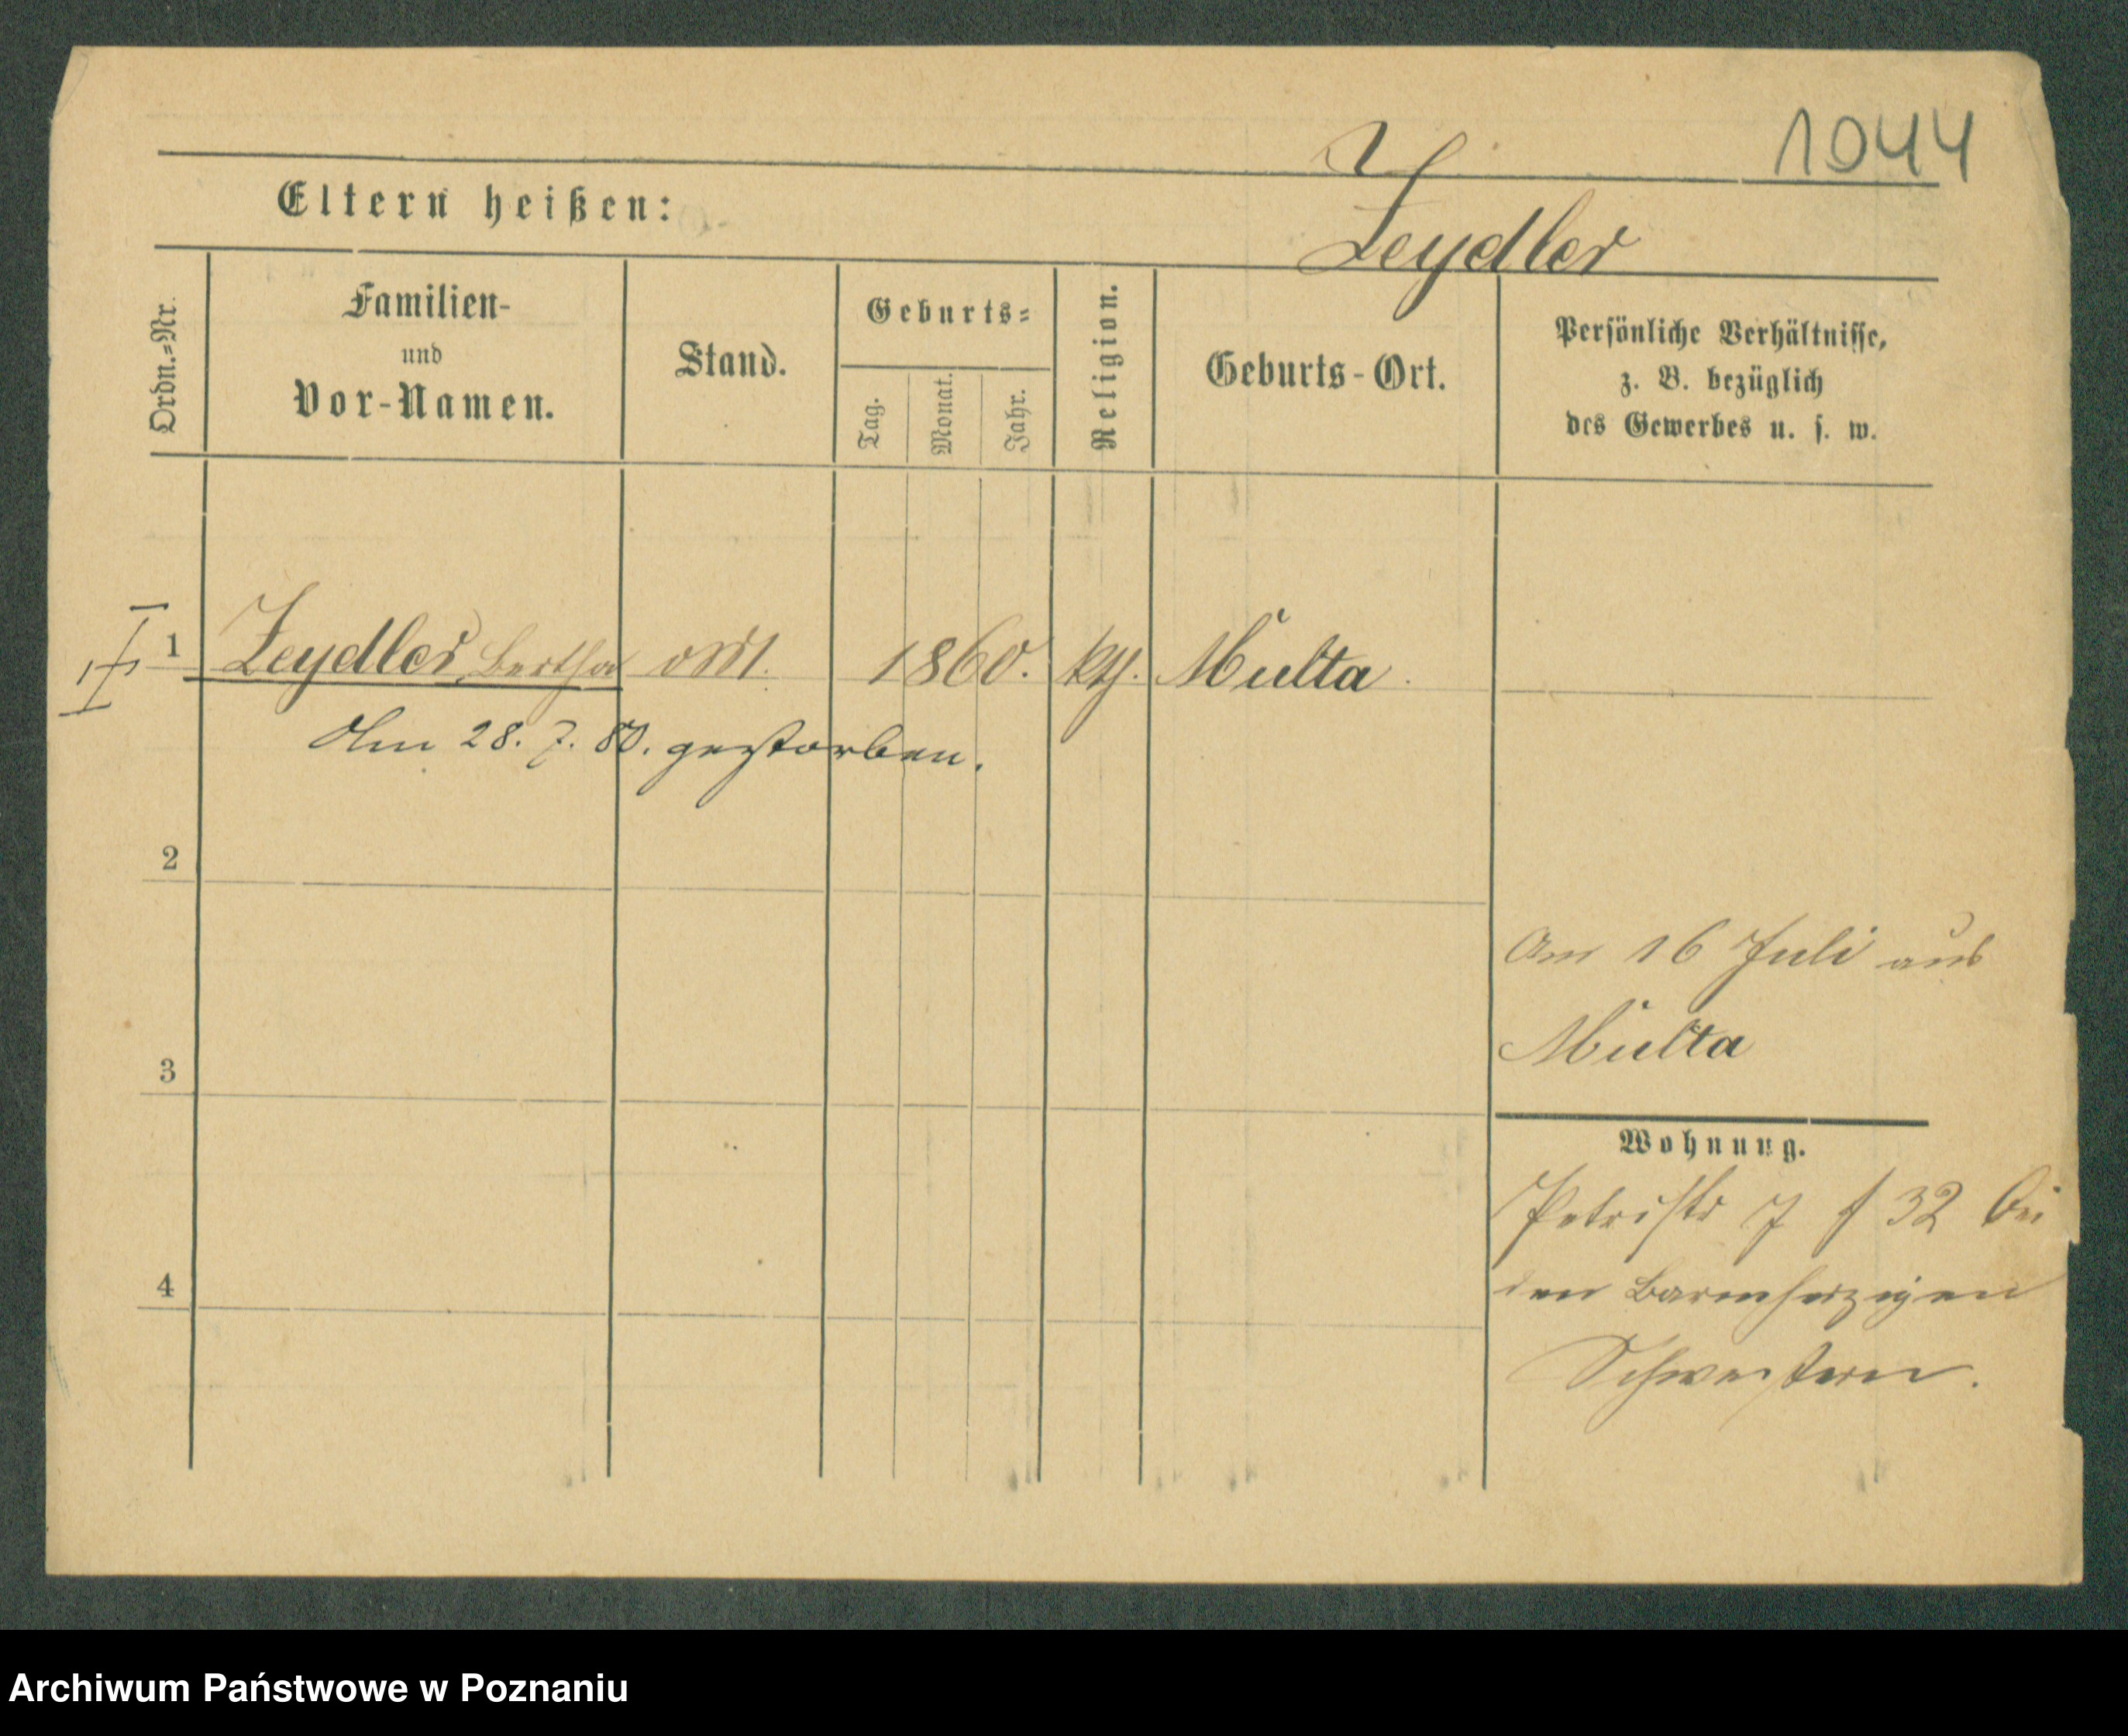 1044
Zeydler
Eltern heißen:
Ordn.=Nr.
Familien-
und
Vor-Namen.
Stand.
Geburts=
Tag.
Monat.
Jahr.
Religion.
Geburts-Ort.
Persönliche Verhältnisse,
z. B. bezüglich
des Gewerbes u. s. w.
1 Zeydler, Bertha 1860. kth. Multa.
Am 28. 7. 80. gestorben.
2
Am 16 Juli aus
Multa
3
Wohnung.
Petristr 7 f 32 bei
den Barmherzigen
4
Schwestern.
Archiwum Państwowe w Poznaniu